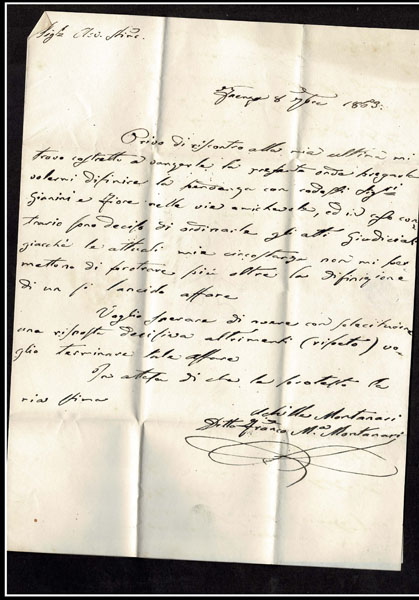 Sigr Avv. Stimo.
Faenza 8 9bre 1863.
Privo di riscontro alla mia ultima mi
trovo costretto a vergarle la presente onde pregarla
volermi difinire la pendenza con codesti Sigri
Gianini e Fiore nelle vie amichevole, ed in caso con
trario sono deciso di ordinarle gli atti Giudiciali
giacchè le attuali mie circostanze non mi per
mettono di protrare più oltre la difinizione
di un sì lancido affare
Voglio sperare di nuovo con solecitudine
una risposta decisiva altrimenti (ripeto) vo
glio terminare tale affare
In attesa di che la protesto la
mia stima
Achille Montanari
Ditta Franco Ma Montanari